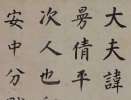 大夫諱
曼倩平
次人也
安中分